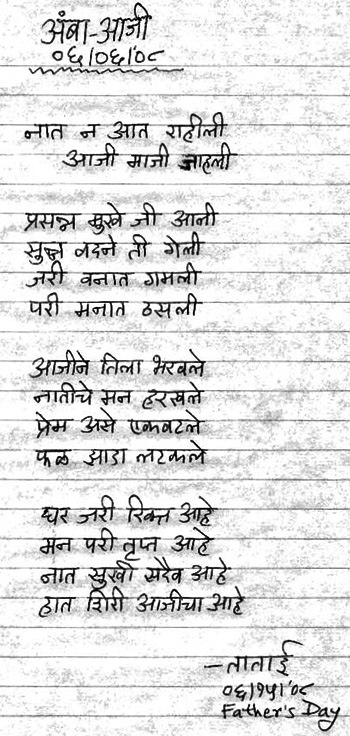 अंबा-आजी
०६/०६/'०८
नात न आत राहीली
आजी माजी जाहली
प्रसन्न मुखे जी आली
सुन्न वदने ती गेली
जरी वनात गमली
परी मनात ठसली
आजीने तिला भरवले
नातीचे मन हरखले
प्रेम असे एकवटले
फळ झाडा लटकले
घर जरी रिक्त आहे
मन परी तृप्त आहे
नात सुखी सदैव आहे
हात शिरी आजीचा आहे
—ताताई
०६/१५/'०८
Father's Day